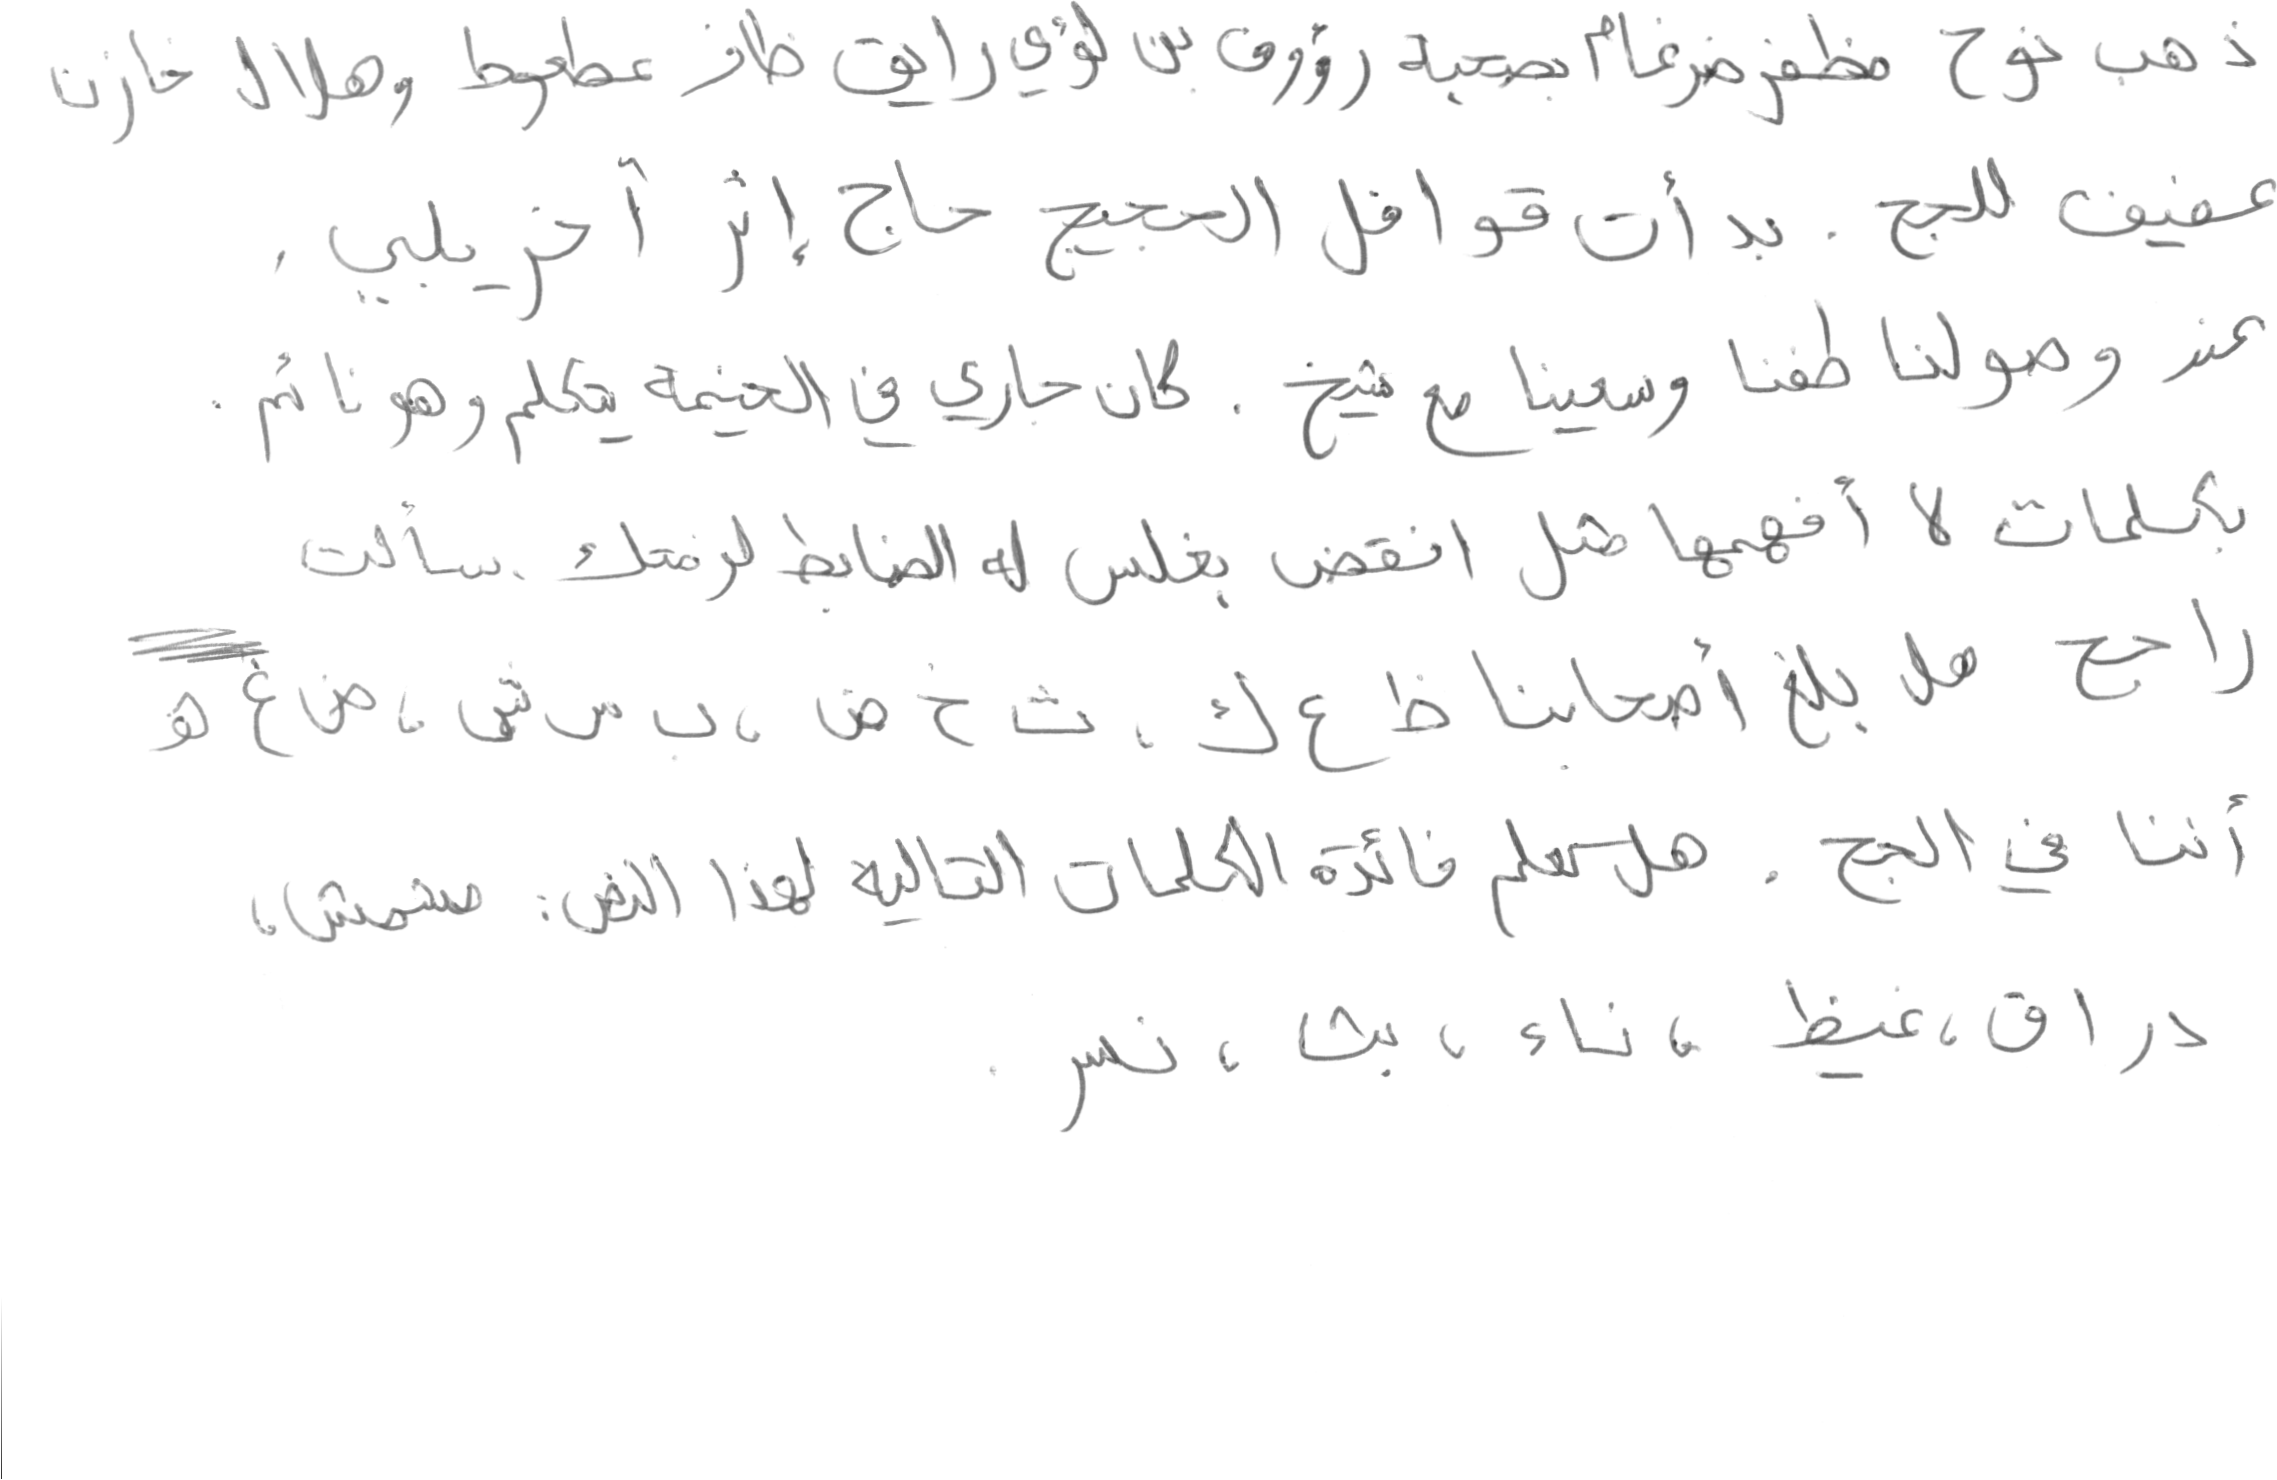 ذهب نوح مظفر ضرغام بصحبة رؤوف بن لؤي رايق ظافر عطعوط وهلال خازن
عفيف للحج . بدأت قوافل الحجيج حاج إثر آخر يلبي ,
عند وصولنا طفنا وسعينا مع شيخ . كان جاري في الخيمة يتكلم وهو نائم .
بكلمات لا أفهمها مثل انقض بغلس له الضابط لرفتك . سألت
راجح هل بلغ أصحابنا ظ ع ك ، ث خ ض ، ب س ش ، ض غ هو
أننا في الحج . هل تعلم فائدة الكلمات التالية لهذا النص : مشمش ،
دراق ، غيظ ، ناء ، بث ، نسر .